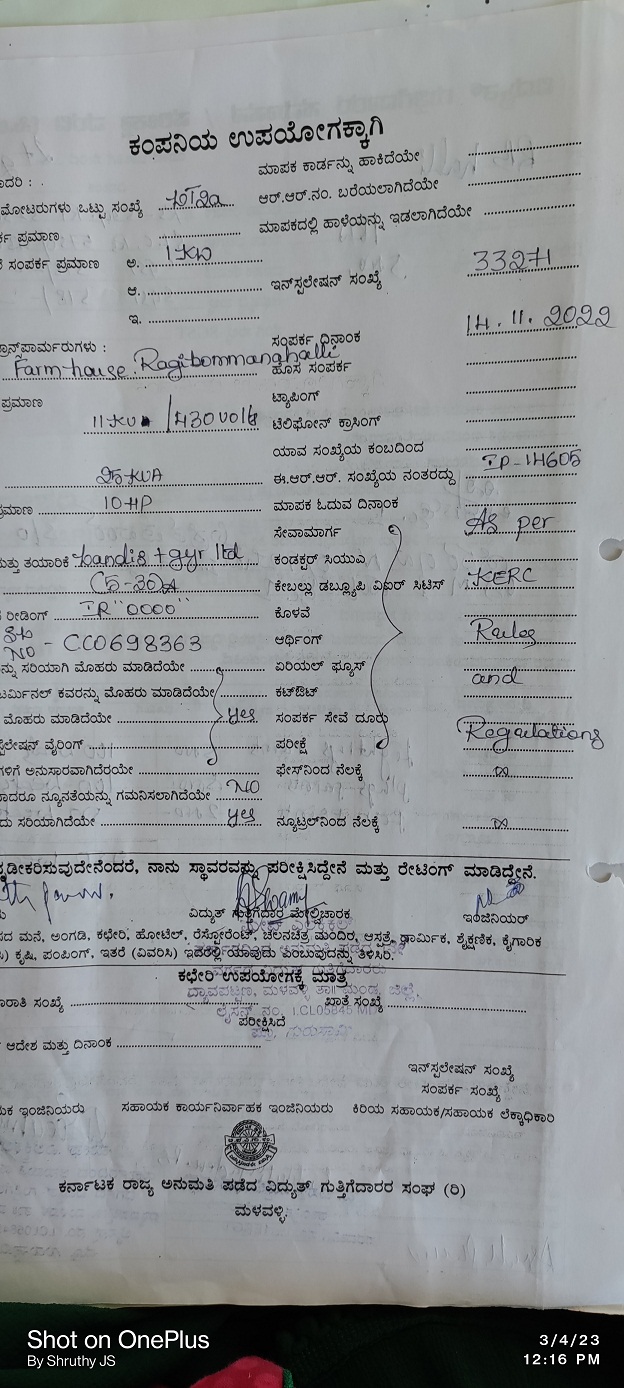 ಕಂಪನಿಯ ಉಪಯೋಗಕ್ಕಾಗಿ
ಮಾಪಕ ಕಾರ್ಡನ್ನು ಹಾಕಿದೆಯೇ
ಮೋಟರುಗಳು ಒಟ್ಟು ಸಂಖ್ಯೆ ಆರ್.ಆರ್.ನಂ. ಬರೆಯಲಾಗಿದೆಯೇ
ಪ್ರಮಾಣ ಮಾಪಕದಲ್ಲಿ ಹಾಳೆಯನ್ನು ಇಡಲಾಗಿದೆಯೇ
ಸಂಪರ್ಕ ಪ್ರಮಾಣ ಅ. 1 KW
ಆ. ಇನ್‌ಸ್ಟಲೇಷನ್ ಸಂಖ್ಯೆ 33271
ಇ.
ಸಂಪರ್ಕ ದಿನಾಂಕ 14.11.2022
Farm house. Ragibommanahalli ಹೊಸ ಸಂಪರ್ಕ
ಪ್ರಮಾಣ ಟ್ಯಾಪಿಂಗ್
11 KV /430 volts ಟೆಲಿಫೋನ್ ಕ್ರಾಸಿಂಗ್
ಯಾವ ಸಂಖ್ಯೆಯ ಕಂಬದಿಂದ
25 KVA ಈ.ಆರ್.ಆರ್. ಸಂಖ್ಯೆಯ ನಂತರದ್ದು IP-14605
10 HP ಮಾಪಕ ಓದುವ ದಿನಾಂಕ
ಸೇವಾಮಾರ್ಗ As per
ಮತ್ತು ತಯಾರಿಕೆ Landis + gyr ltd ಕಂಡಕ್ಟರ್ ಸಿಯುಎ
C5-30A ಕೇಬಲ್ಲು ಡಬ್ಲ್ಯೂಪಿ ವಿಐರ್ ಸಿಟಿಸ್ KERC
ರೀಡಿಂಗ್ IR "0000" ಕೊಳವೆ
NO - CC0698363 ಆರ್ಥಿಂಗ್ Rules
ಸರಿಯಾಗಿ ಮೊಹರು ಮಾಡಿದೆಯೇ ಏರಿಯಲ್ ಫ್ಯೂಸ್ and
ಟರ್ಮಿನಲ್ ಕವರನ್ನು ಮೊಹರು ಮಾಡಿದೆಯೇ ಕಟ್‌ಔಟ್
ಮೊಹರು ಮಾಡಿದೆಯೇ Yes ಸಂಪರ್ಕ ಸೇವೆ ದೂರು
ವೈರಿಂಗ್ ಪರೀಕ್ಷೆ Regulations
ಅನುಸಾರವಾಗಿದೆಯೇ ಫೇಸ್‌ನಿಂದ ನೆಲಕ್ಕೆ
ನ್ಯೂನತೆಯನ್ನು ಗಮನಿಸಲಾಗಿದೆಯೇ NO
ಸರಿಯಾಗಿದೆಯೇ Yes ನ್ಯೂಟ್ರಲ್‌ನಿಂದ ನೆಲಕ್ಕೆ
ದೃಢೀಕರಿಸುವುದೇನೆಂದರೆ, ನಾನು ಸ್ಥಾವರವನ್ನು ಪರೀಕ್ಷಿಸಿದ್ದೇನೆ ಮತ್ತು ರೇಟಿಂಗ್ ಮಾಡಿದ್ದೇನೆ.
ವಿದ್ಯುತ್ ಗುತ್ತಿಗೆದಾರ ಮೇಲ್ವಿಚಾರಕ ಇಂಜಿನಿಯರ್
ಮನೆ, ಅಂಗಡಿ, ಕಛೇರಿ, ಹೋಟೆಲ್, ರೆಸ್ಟೋರೆಂಟ್, ಚಲನಚಿತ್ರ ಮಂದಿರ, ಆಸ್ಪತ್ರೆ, ಧಾರ್ಮಿಕ, ಶೈಕ್ಷಣಿಕ, ಕೈಗಾರಿಕ
ಕೃಷಿ, ಪಂಪಿಂಗ್, ಇತರೆ (ವಿವರಿಸಿ) ಇದರಲ್ಲಿ ಯಾವುದು ಎಂಬುವುದನ್ನು ತಿಳಿಸಿರಿ.
ಕಛೇರಿ ಉಪಯೋಗಕ್ಕೆ ಮಾತ್ರ
ಸಂಖ್ಯೆ ಖಾತೆ ಸಂಖ್ಯೆ
ಪರೀಕ್ಷಿಸಿದೆ
ಆದೇಶ ಮತ್ತು ದಿನಾಂಕ
ಇನ್‌ಸ್ಟಲೇಷನ್ ಸಂಖ್ಯೆ
ಸಂಪರ್ಕ ಸಂಖ್ಯೆ
ಇಂಜಿನಿಯರು ಸಹಾಯಕ ಕಾರ್ಯನಿರ್ವಾಹಕ ಇಂಜಿನಿಯರು ಕಿರಿಯ ಸಹಾಯಕ/ಸಹಾಯಕ ಲೆಕ್ಕಾಧಿಕಾರಿ
ಕರ್ನಾಟಕ ರಾಜ್ಯ ಅನುಮತಿ ಪಡೆದ ವಿದ್ಯುತ್ ಗುತ್ತಿಗೆದಾರರ ಸಂಘ (ರಿ)
ಮಳವಳ್ಳಿ.
Shot on OnePlus
By Shruthy JS
3/4/23
12:16 PM